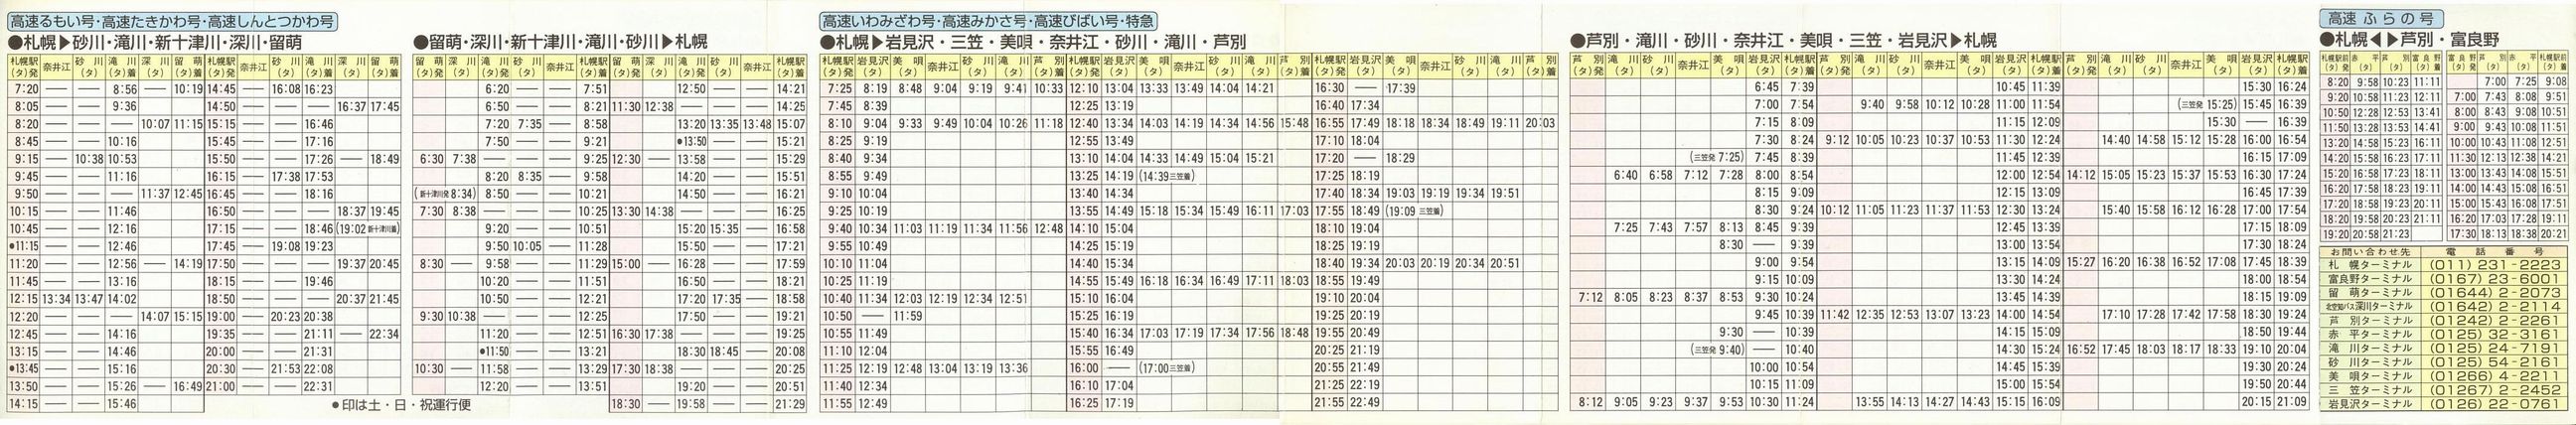 高速るもい号・高速たきかわ号・高速しんとつかわ号
●札幌▶砂川・滝川・新十津川・深川・留萌
札幌駅(タ)発 奈井江 砂川(タ) 滝川(タ) 深川(タ) 留萌(タ)着 札幌駅(タ)発 奈井江 砂川(タ) 滝川(タ) 深川(タ) 留萌(タ)着
7:20 ― ― 8:56 ― 10:19 14:45 ― 16:08 16:23
8:05 ― ― 9:36 14:50 ― ― ― 16:37 17:45
8:20 ― ― ― 10:07 11:15 15:15 ― ― 16:46
8:45 ― ― 10:16 15:45 ― ― 17:16
9:15 ― 10:38 10:53 15:50 ― ― 17:26 ― 18:49
9:45 ― ― 11:16 16:15 ― 17:38 17:53
9:50 ― ― ― 11:37 12:45 16:45 ― ― 18:16
10:15 ― ― 11:46 16:50 ― ― ― 18:37 19:45
10:45 ― ― 12:16 17:15 ― ― 18:46 (19:02 新十津川着)
●11:15 ― ― 12:46 17:45 ― 19:08 19:23
11:20 ― ― 12:56 ― 14:19 17:50 ― ― ― 19:37 20:45
11:45 ― ― 13:16 18:15 ― ― 19:46
12:15 13:34 13:47 14:02 18:50 ― ― ― 20:37 21:45
12:20 ― ― ― 14:07 15:15 19:00 ― 20:23 20:38
12:45 ― ― 14:16 19:35 ― ― 21:11 ― 22:34
13:15 ― ― 14:46 20:00 ― ― 21:31
●13:45 ― ― 15:16 20:30 ― 21:53 22:08
13:50 ― ― 15:26 ― 16:49 21:00 ― ― 22:31
14:15 ― ― 15:46
●印は土・日・祝運行便
●留萌・深川・新十津川・滝川・砂川▶札幌
留萌(タ)発 深川(タ) 滝川(タ)発 砂川(タ) 奈井江 札幌駅(タ)着 留萌(タ)発 深川(タ) 滝川(タ)発 砂川(タ) 奈井江 札幌駅(タ)着
6:20 ― ― 7:51 12:50 ― ― 14:21
6:50 ― ― 8:21 11:30 12:38 ― ― ― 14:25
7:20 7:35 ― 8:58 13:20 13:35 13:48 15:07
7:50 ― ― 9:21 ●13:50 ― ― 15:21
6:30 7:38 ― ― ― 9:25 12:30 ― 13:58 ― ― 15:29
8:20 8:35 ― 9:58 14:20 ― ― 15:51
(新十津川発 8:34) 8:50 ― ― 10:21 14:50 ― ― 16:21
7:30 8:38 ― ― ― 10:25 13:30 14:38 ― ― ― 16:25
9:20 ― ― 10:51 15:20 15:35 ― 16:58
9:50 10:05 ― 11:28 15:50 ― ― 17:21
8:30 ― 9:58 ― ― 11:29 15:00 ― 16:28 ― ― 17:59
10:20 ― ― 11:51 16:50 ― ― 18:21
10:50 ― ― 12:21 17:20 17:35 ― 18:58
9:30 10:38 ― ― ― 12:25 17:50 ― ― 19:21
11:20 ― ― 12:51 16:30 17:38 ― ― ― 19:25
●11:50 ― ― 13:21 18:30 18:45 ― 20:08
10:30 ― 11:58 ― ― 13:29 17:30 18:38 ― ― ― 20:25
12:20 ― ― 13:51 19:20 ― ― 20:51
18:30 ― 19:58 ― ― 21:29
高速いわみざわ号・高速みかさ号・高速びばい号・特急
●札幌▶岩見沢・三笠・美唄・奈井江・砂川・滝川・芦別
札幌駅(タ)発 岩見沢(タ) 美唄(タ) 奈井江 砂川(タ) 滝川(タ) 芦別(タ)着 札幌駅(タ)発 岩見沢(タ) 美唄(タ) 奈井江 砂川(タ) 滝川(タ) 芦別(タ)着 札幌駅(タ)発 岩見沢(タ) 美唄(タ) 奈井江 砂川(タ) 滝川(タ) 芦別(タ)着
7:25 8:19 8:48 9:04 9:19 9:41 10:33 12:10 13:04 13:33 13:49 14:04 14:21 16:30 ― 17:39
7:45 8:39 12:25 13:19 16:40 17:34
8:10 9:04 9:33 9:49 10:04 10:26 11:18 12:40 13:34 14:03 14:19 14:34 14:56 15:48 16:55 17:49 18:18 18:34 18:49 19:11 20:03
8:25 9:19 12:55 13:49 17:10 18:04
8:40 9:34 13:10 14:04 14:33 14:49 15:04 15:21 17:20 ― 18:29
8:55 9:49 13:25 14:19 (14:39三笠着) 17:25 18:19
9:10 10:04 13:40 14:34 17:40 18:34 19:03 19:19 19:34 19:51
9:25 10:19 13:55 14:49 15:18 15:34 15:49 16:11 17:03 17:55 18:49 (19:09 三笠着)
9:40 10:34 11:03 11:19 11:34 11:56 12:48 14:10 15:04 18:10 19:04
9:55 10:49 14:25 15:19 18:25 19:19
10:10 11:04 14:40 15:34 18:40 19:34 20:03 20:19 20:34 20:51
10:25 11:19 14:55 15:49 16:18 16:34 16:49 17:11 18:03 18:55 19:49
10:40 11:34 12:03 12:19 12:34 12:51 15:10 16:04 19:10 20:04
10:50 ― 11:59 15:25 16:19 19:25 20:19
10:55 11:49 15:40 16:34 17:03 17:19 17:34 17:56 18:48 19:55 20:49
11:10 12:04 15:55 16:49 20:25 21:19
11:25 12:19 12:48 13:04 13:19 13:36 16:00 ― (17:00三笠着) 20:55 21:49
11:40 12:34 16:10 17:04 21:25 22:19
11:55 12:49 16:25 17:19 21:55 22:49
●芦別・滝川・砂川・奈井江・美唄・三笠・岩見沢▶札幌
芦別(タ)発 滝川(タ) 砂川(タ) 奈井江 美唄(タ) 岩見沢(タ)発 札幌駅(タ)着 芦別(タ)発 滝川(タ) 砂川(タ) 奈井江 美唄(タ) 岩見沢(タ)発 札幌駅(タ)着 芦別(タ)発 滝川(タ) 砂川(タ) 奈井江 美唄(タ) 岩見沢(タ)発 札幌駅(タ)着
6:45 7:39 10:45 11:39 15:30 16:24
7:00 7:54 9:40 9:58 10:12 10:28 11:00 11:54 (三笠発 15:25) 15:45 16:39
7:15 8:09 11:15 12:09 15:30 ― 16:39
7:30 8:24 9:12 10:05 10:23 10:37 10:53 11:30 12:24 14:40 14:58 15:12 15:28 16:00 16:54
(三笠発 7:25) 7:45 8:39 11:45 12:39 16:15 17:09
6:40 6:58 7:12 7:28 8:00 8:54 12:00 12:54 14:12 15:05 15:23 15:37 15:53 16:30 17:24
8:15 9:09 12:15 13:09 16:45 17:39
8:30 9:24 10:12 11:05 11:23 11:37 11:53 12:30 13:24 15:40 15:58 16:12 16:28 17:00 17:54
7:25 7:43 7:57 8:13 8:45 9:39 12:45 13:39 17:15 18:09
8:30 ― 9:39 13:00 13:54 17:30 18:24
9:00 9:54 13:15 14:09 15:27 16:20 16:38 16:52 17:08 17:45 18:39
9:15 10:09 13:30 14:24 18:00 18:54
7:12 8:05 8:23 8:37 8:53 9:30 10:24 13:45 14:39 18:15 19:09
9:45 10:39 11:42 12:35 12:53 13:07 13:23 14:00 14:54 17:10 17:28 17:42 17:58 18:30 19:24
9:30 ― 10:39 14:15 15:09 18:50 19:44
(三笠発 9:40) ― 10:40 14:30 15:24 16:52 17:45 18:03 18:17 18:33 19:10 20:04
10:00 10:54 14:45 15:39 19:30 20:24
10:15 11:09 15:00 15:54 19:50 20:44
8:12 9:05 9:23 9:37 9:53 10:30 11:24 13:55 14:13 14:27 14:43 15:15 16:09 20:15 21:09
高速ふらの号
●札幌◀▶芦別・富良野
札幌駅前(タ)発 赤平(タ) 芦別(タ) 富良野(タ)着 富良野(タ)発 芦別(タ) 赤平(タ) 札幌駅前(タ)着
8:20 9:58 10:23 11:11 7:00 7:25 9:08
9:20 10:58 11:23 12:11 7:00 7:43 8:08 9:51
10:50 12:28 12:53 13:41 8:00 8:43 9:08 10:51
11:50 13:28 13:53 14:41 9:00 9:43 10:08 11:51
13:20 14:58 15:23 16:11 10:00 10:43 11:08 12:51
14:20 15:58 16:23 17:11 11:30 12:13 12:38 14:21
15:20 16:58 17:23 18:11 13:00 13:43 14:08 15:51
16:20 17:58 18:23 19:11 14:00 14:43 15:08 16:51
17:20 18:58 19:23 20:11 15:00 15:43 16:08 17:51
18:20 19:58 20:23 21:11 16:20 17:03 17:28 19:11
19:20 20:58 21:23 17:30 18:13 18:38 20:21
お問い合わせ先 電話番号
札幌ターミナル (011) 231-2223
富良野ターミナル (0167) 23-6001
留萌ターミナル (01644) 2-2073
北空知バス深川ターミナル (01642) 2-2114
芦別ターミナル (01242) 2-2261
赤平ターミナル (0125) 32-3161
滝川ターミナル (0125) 24-7191
砂川ターミナル (0125) 54-2161
美唄ターミナル (01266) 4-2211
三笠ターミナル (01267) 2-2452
岩見沢ターミナル (0126) 22-0761